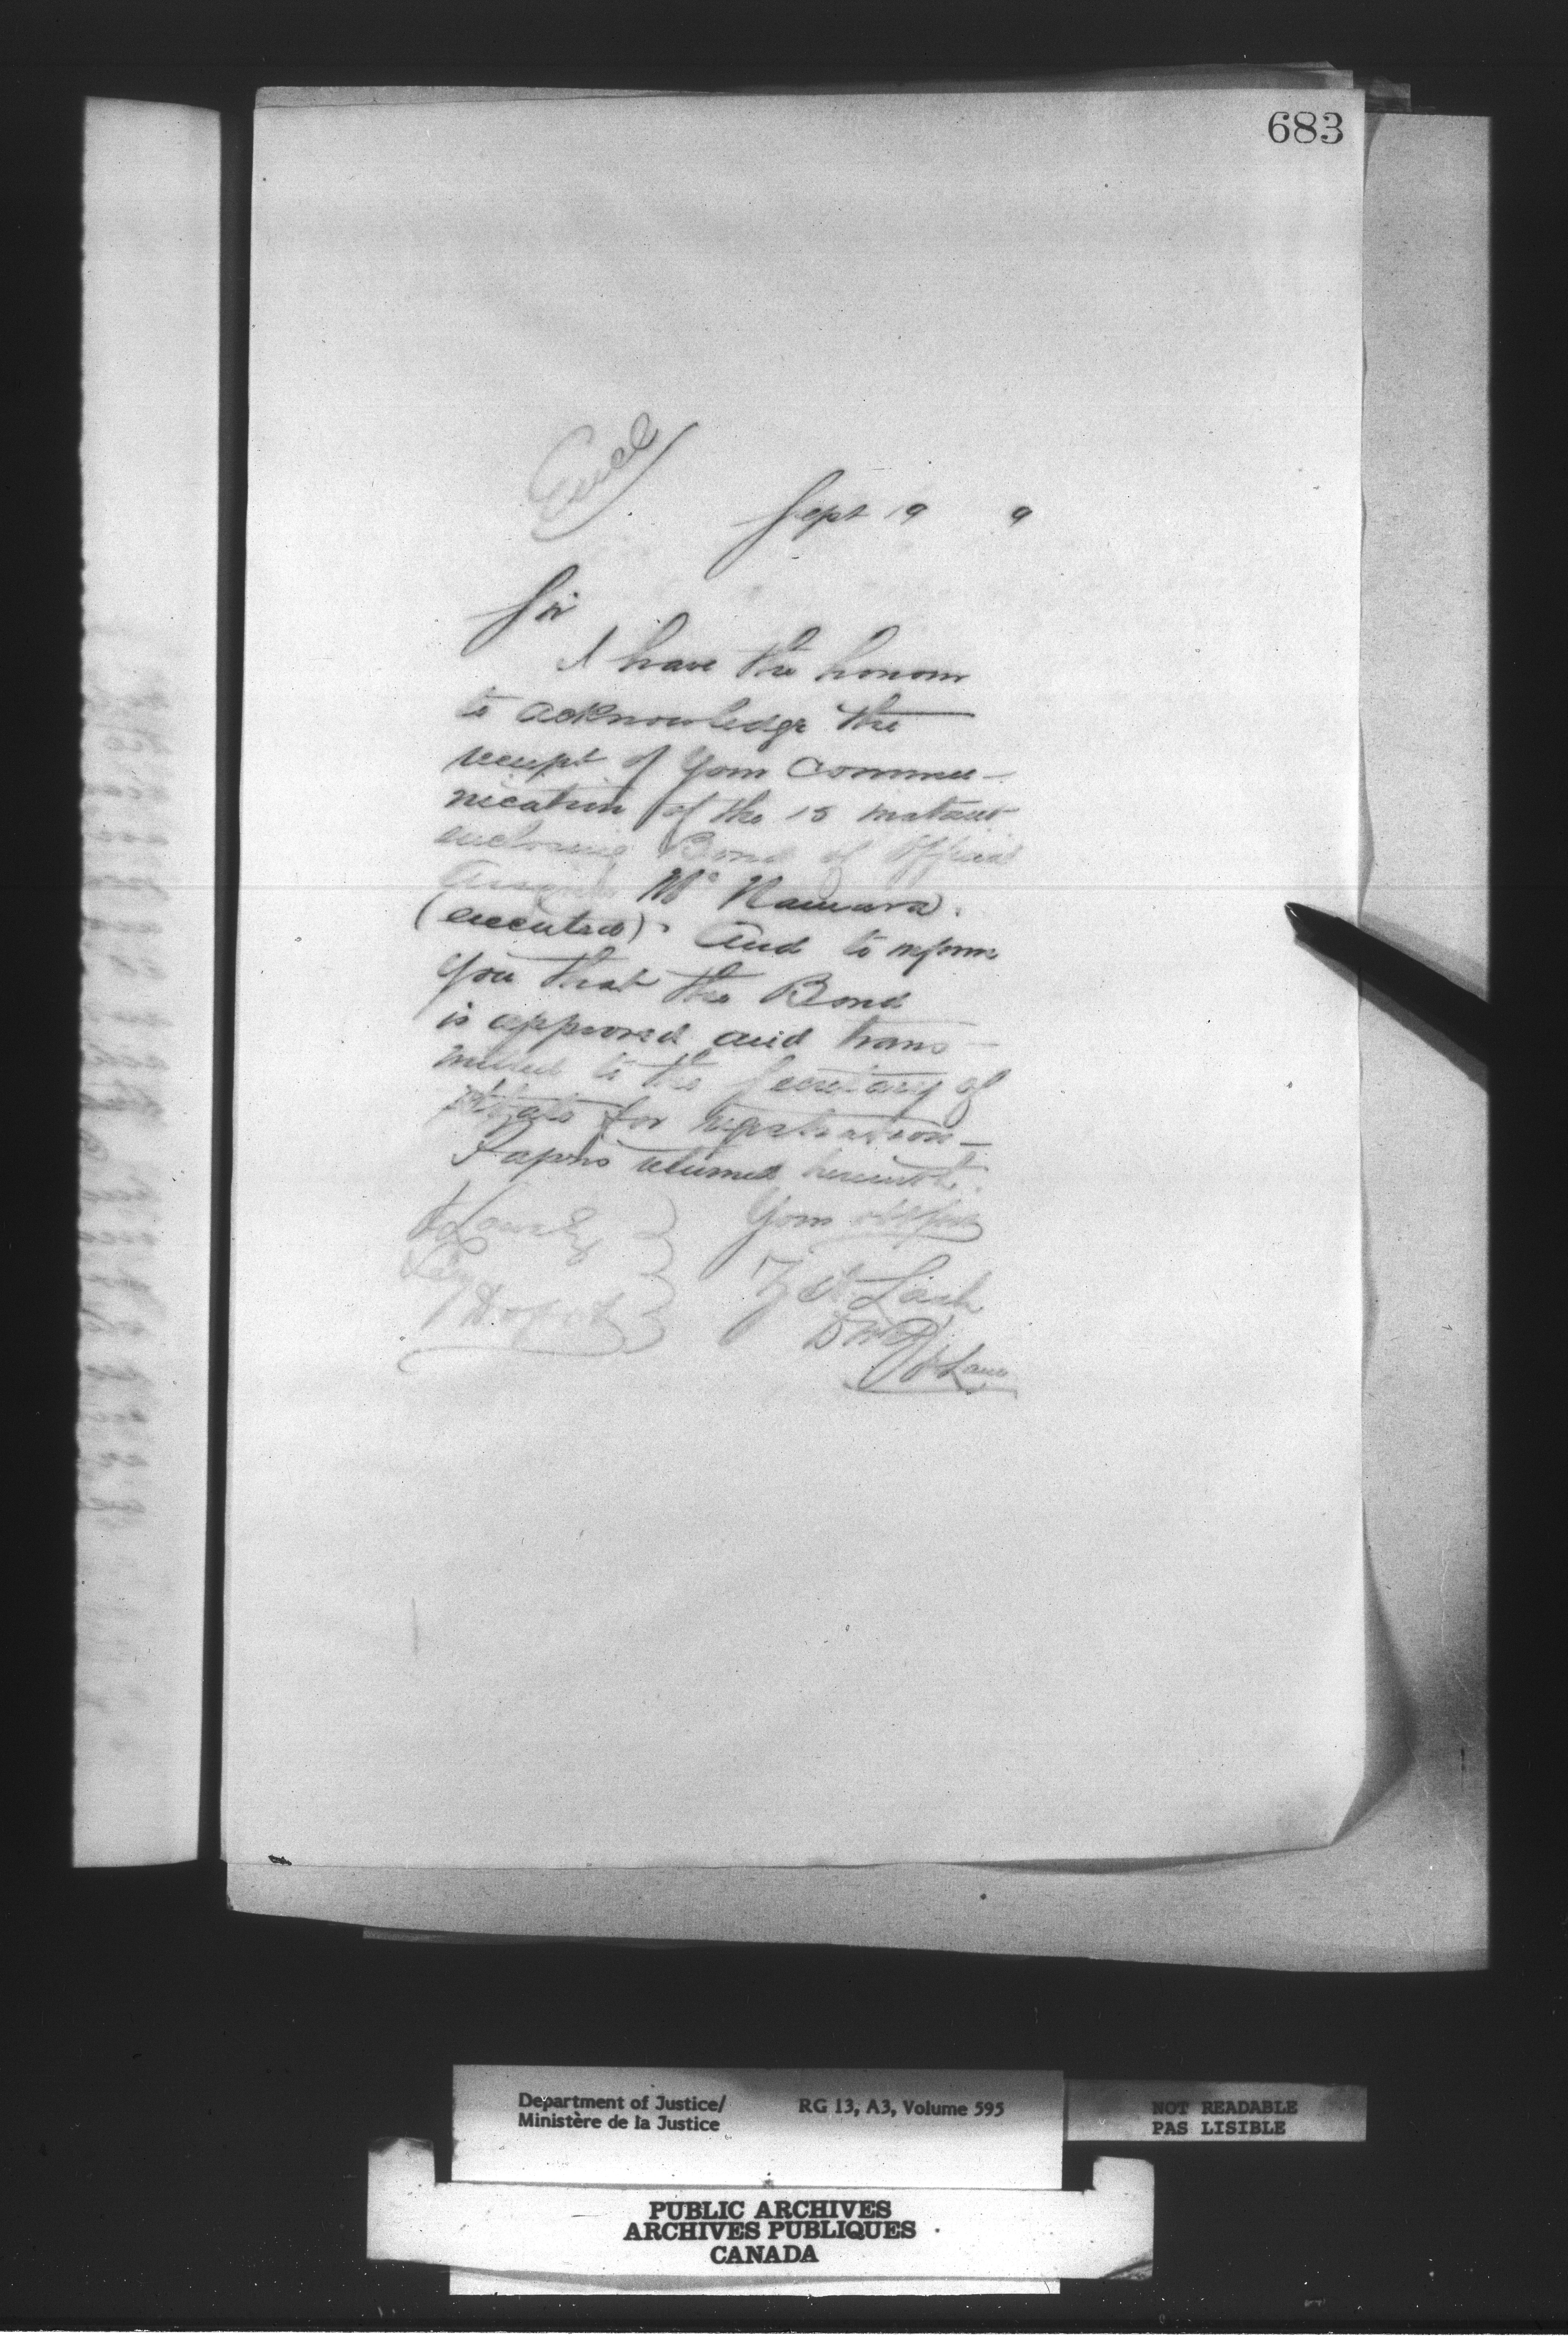 683
Encl
Sept 19 9
Sir
I have the honour
to acknowledge the
receipt of your commu-
nication of the 15 instant
enclosing Bond of Official
Assignee McNamara.
(executed). And to inform
you that the Bond
is approved and trans-
mitted to the Secretary of
State for registration-
Papers returned herewith.
Your obt Svt
Z A Lash
DMJ
Department of Justice/
Ministère de la Justice
RG 13, A3, Volume 595
NOT READABLE
PAS LISIBLE
PUBLIC ARCHIVES
ARCHIVES PUBLIQUES
CANADA